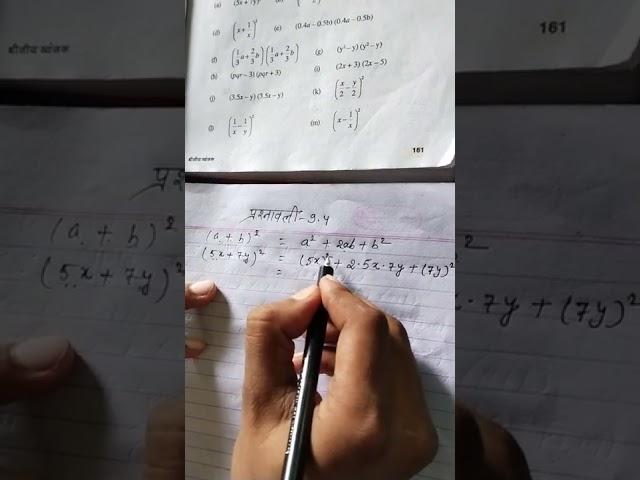 (a) (5x + 7y)²
(d) (x + 1/x)² (e) (0.4a – 0.5b) (0.4a – 0.5b)
(f) (1/3 a + 2/3 b) (1/3 a + 2/3 b) (g) (y² – y) (y² – y)
(h) (pqr – 3) (pqr + 3) (i) (2x + 3) (2x – 5)
(j) (3.5x – y) (3.5x – y) (k) (x/2 – y/2)²
(l) (1/x – 1/y)² (m) (x – 1/x)²
बीजीय व्यंजक 161
प्रश्नावली- 9.4
(a + b)² = a² + 2ab + b²
(5x + 7y)² = (5x)² + 2·5x·7y + (7y)²
=